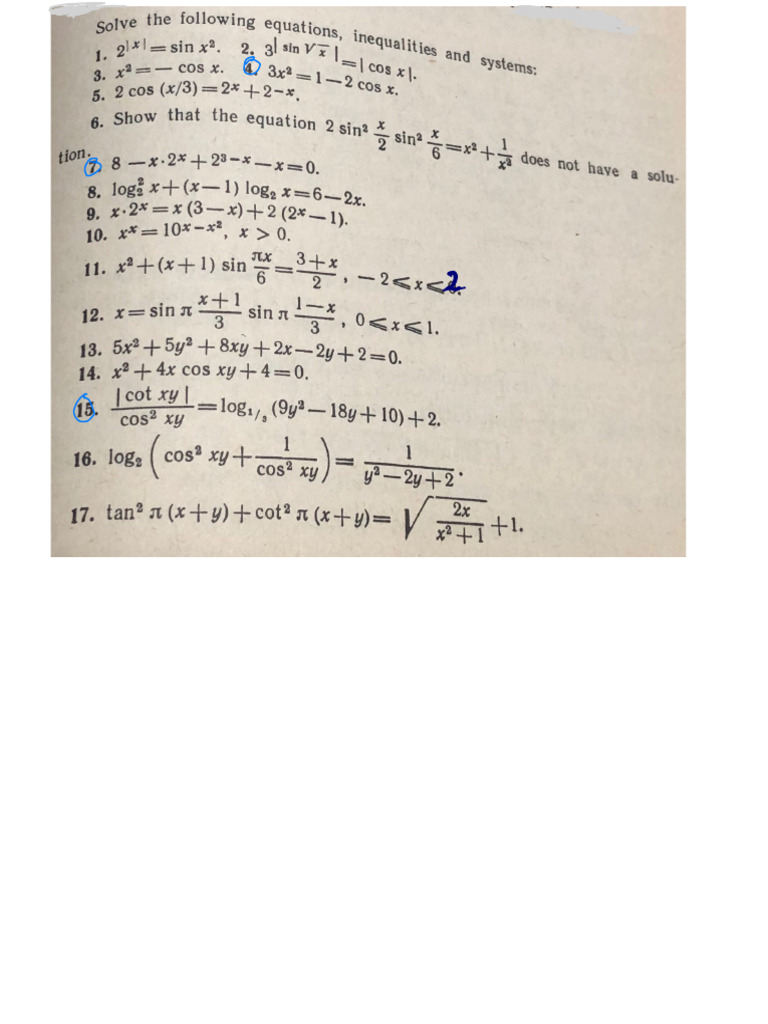 Solve the following equations, inequalities and systems:
1. 2^{|x|} = sin x². 2. 3^{|sin √x|} = |cos x|.
3. x² = — cos x. 4. 3x² = 1 — 2 cos x.
5. 2 cos (x/3) = 2^x + 2^{-x}.
6. Show that the equation 2 sin² \frac{x}{2} sin² \frac{x}{6} = x² + \frac{1}{x²} does not have a solu-
tion.
7. 8 — x·2^x + 2^{3-x} — x = 0.
8. log₂² x + (x — 1) log₂ x = 6 — 2x.
9. x·2^x = x (3 — x) + 2 (2^x — 1).
10. x^x = 10^{x-x²}, x > 0.
11. x² + (x + 1) sin \frac{πx}{6} = \frac{3 + x}{2}, — 2 ⩽ x ⩽ 2
12. x = sin π \frac{x + 1}{3} sin π \frac{1 — x}{3}, 0 ⩽ x ⩽ 1.
13. 5x² + 5y² + 8xy + 2x — 2y + 2 = 0.
14. x² + 4x cos xy + 4 = 0.
15. \frac{|cot xy|}{cos² xy} = log_{1/3} (9y² — 18y + 10) + 2.
16. log₂ (cos² xy + \frac{1}{cos² xy}) = \frac{1}{y² — 2y + 2}.
17. tan² π (x + y) + cot² π (x + y) = √\frac{2x}{x² + 1} + 1.